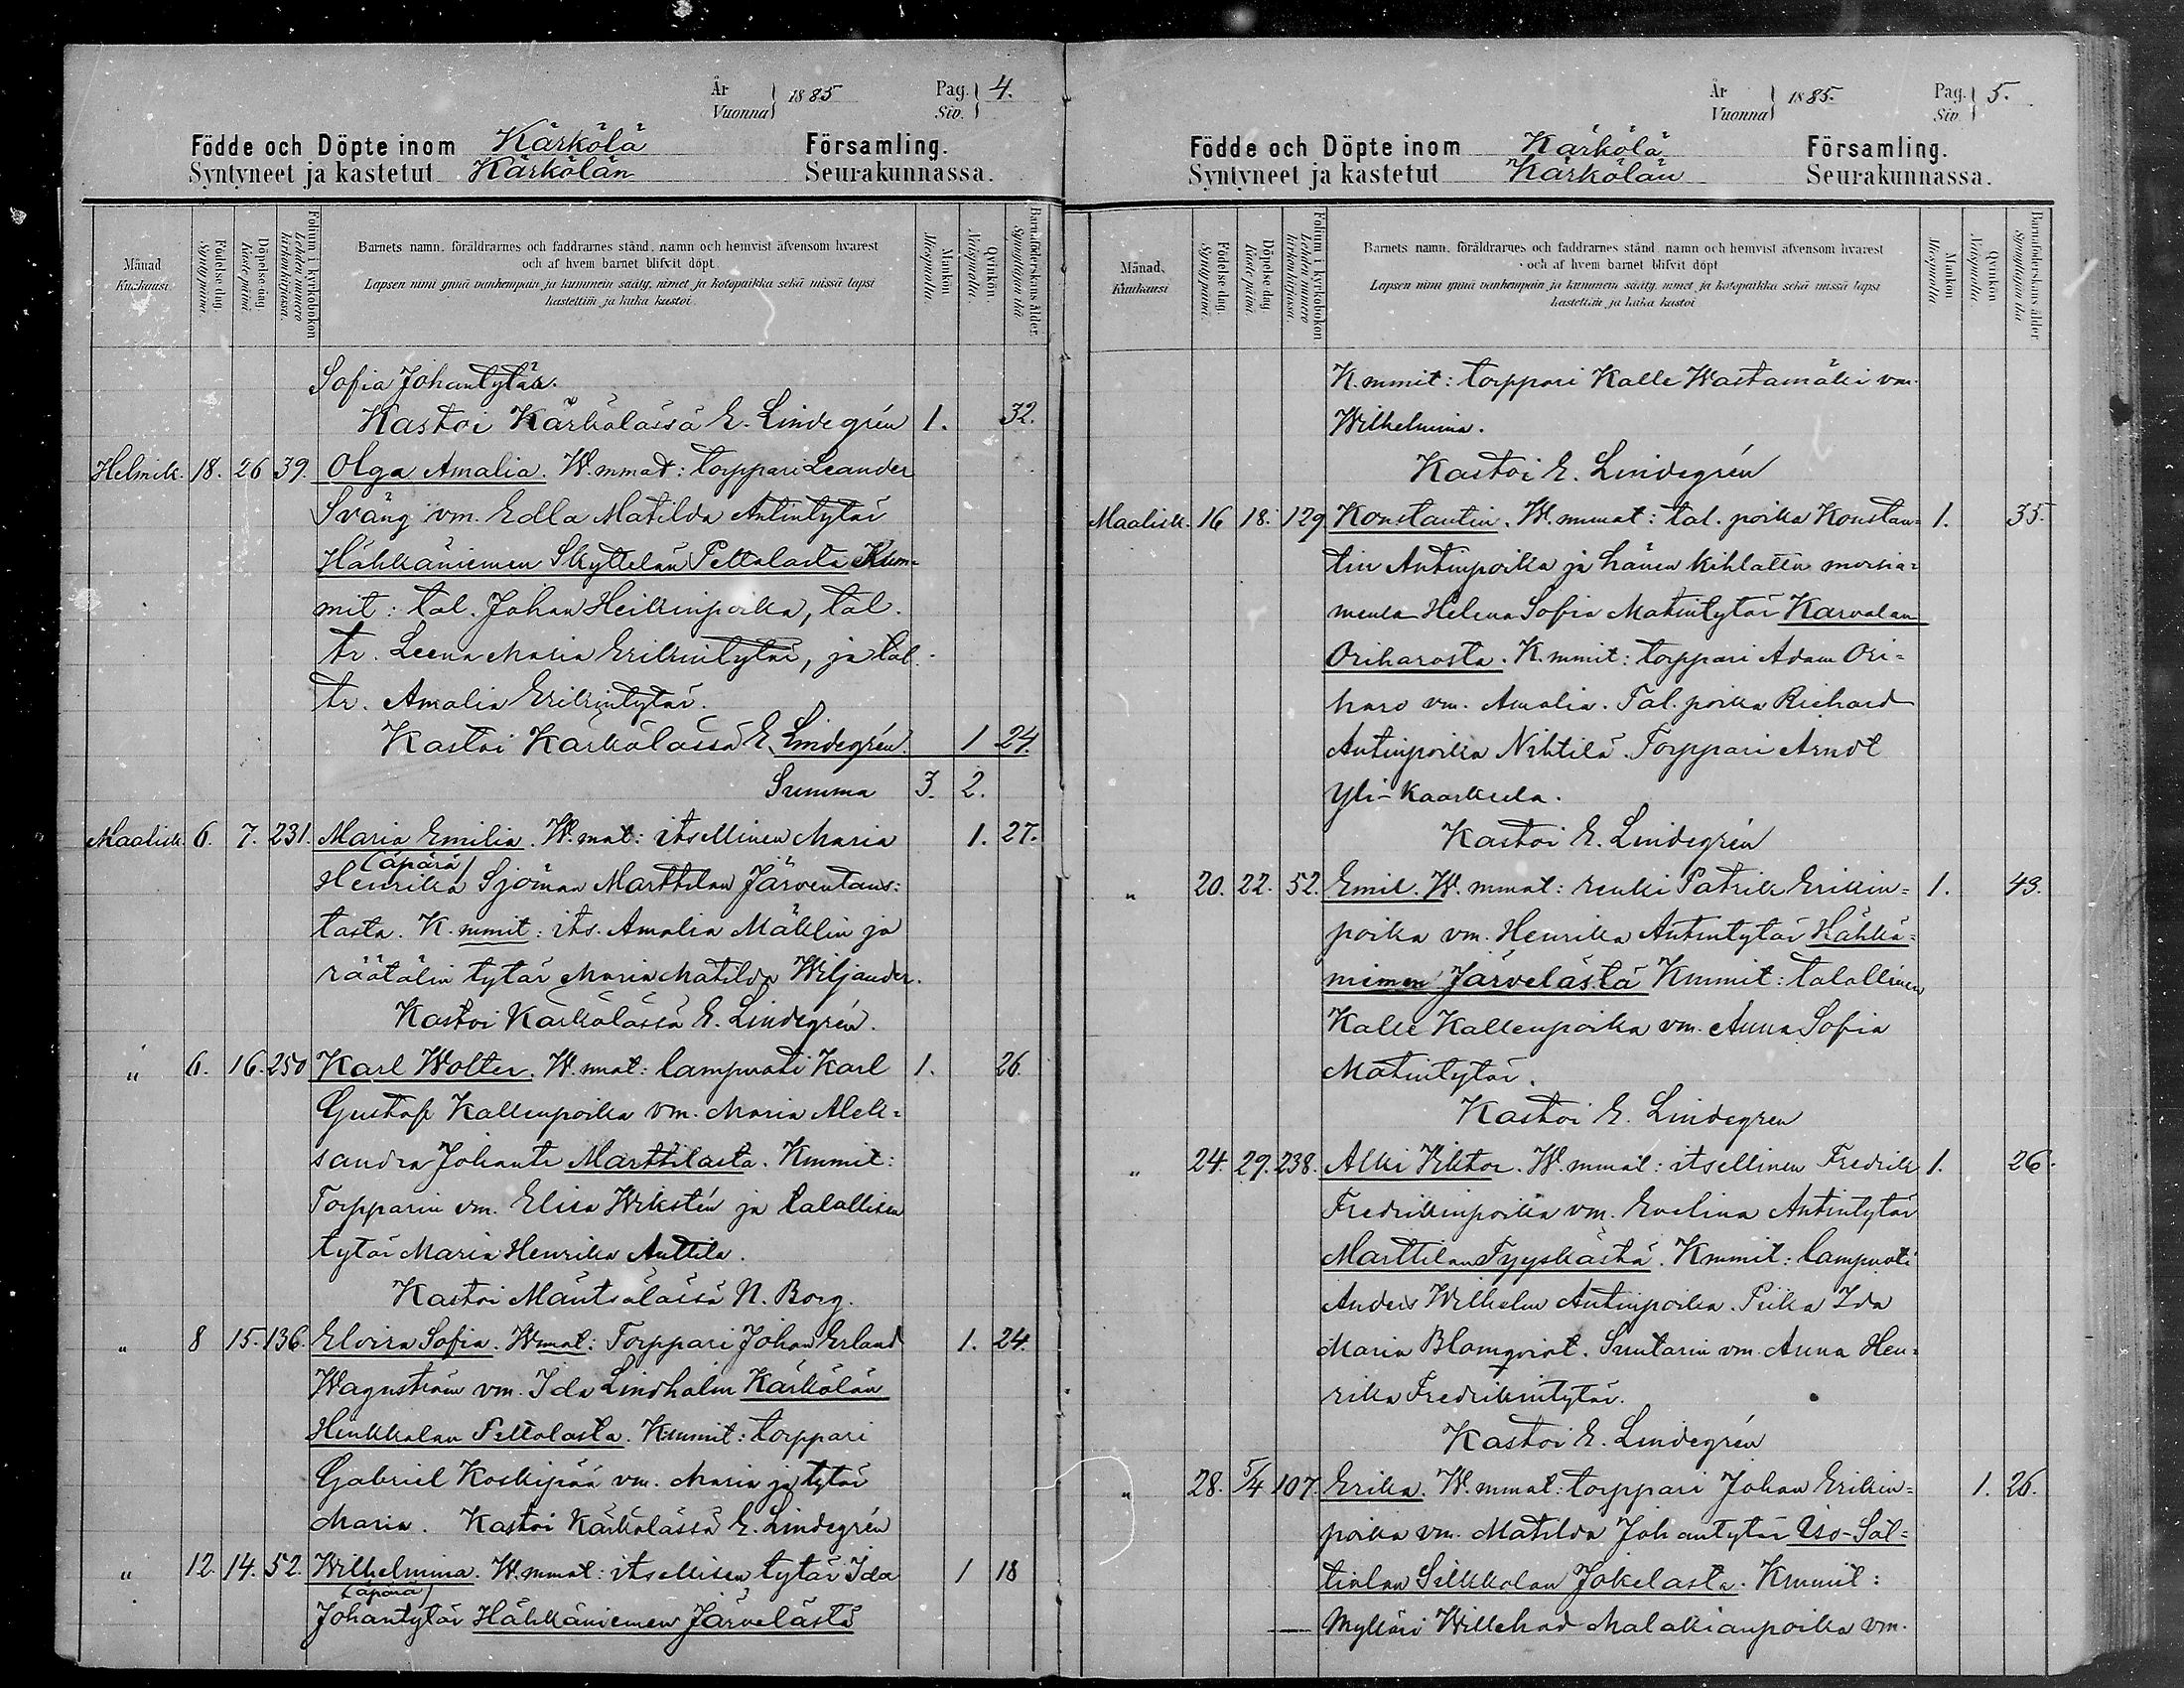 År
Vuonna } 1885 Pag.
Siv. } 4.
Födde och Döpte inom Kärkölä Församling.
Syntyneet ja kastetut Kärkölän Seurakunnassa.
Månad
Kuukausi
Födelse dag.
Syntypäivä.
Döpelse dag.
Kaste päivä.
Folium i kyrkoboken
Lehden numero kirkonkirjassa.
Barnets namn, föräldrarnes och faddrarnes stånd, namn och hemvist äfvensom hvarest
och af hvem barnet blifvit döpt.
Lapsen nimi ynnä vanhempain ja kummein sääty, nimet ja kotopaikka sekä missä lapsi
kastettiin ja kuka kastoi.
Mankön
Miespuolia.
Qvinkön.
Naispuolia.
Barnaföderskans ålder
Synnyttäjän ikä
Sofia Johantytär.
Kastoi Kärkölässä E. Lindegrén 1. 32.
Helmik. 18. 26 39. Olga Amalia. W.mmat: torppari Leander
Sväng vm. Edla Matilda Antintytär
Hähkäniemen Skyttelän Peltolasta Kum=
mit: tal. Johan Heikinpoika, tal.
tr. Leena Maria Erikintytär, ja tal.
tr. Amalia Erikintytär.
Kastoi Kärkölässä E. Lindegrén. 1 24.
Summa 3. 2.
Maalisk. 6. 7. 231. Maria Emilia. W.mat: itsellinen Maria 1. 27.
(äpärä)
Henrika Sjöman Marttilan Järventaus=
tasta. K.mmit: its. Amalia Mäklin ja
räätälin tytär Maria Matilda Wiljander.
Kastoi Kärkölässä E. Lindegrén.
" 6. 16. 250 Karl Wolter. W.mat: lampuoti Karl 1. 26.
Gustaf Kallenpoika vm. Maria Alek=
sandra Johantr Marttilasta. Kmmit:
Torpparin vm. Elisa Wiksten ja talollisen
tytär Maria Henrika Anttila.
Kastoi Mäntsälässä N. Borg.
" 8 15. 136. Elvira Sofia. Wmat: Torppari Johan Erland 1. 24.
Wagnström vm. Ida Lindholm Kärkölän
Heukkalan Peltolasta. Kmmit: torppari
Gabriel Koskipää vm. Maria ja tytär
Maria. Kastoi Kärkölässä E. Lindegrén
" 12. 14. 52. Wilhelmina. W.mmat: itsellisen tytär Ida 1 18
(äpärä)
Johantytär Hähkäniemen Järvelästä
År
Vuonna } 1885. Pag.
Siv. } 5.
Födde och Döpte inom Kärkölä Församling.
Syntyneet ja kastetut Kärkölän Seurakunnassa.
Månad.
Kuukausi
Födelse dag.
Syntypäivä.
Döpelse dag.
Kaste päivä.
Folium i kyrkoboken
Lehden numero kirkonkirjassa.
Barnets namn, föräldrarnes och faddrarnes stånd, namn och hemvist äfvensom hvarest
och af hvem barnet blifvit döpt
Lapsen nimi ynnä vanhempain ja kummein sääty, nimet ja kotopaikka sekä missä lapsi
kastettiin ja kuka kastoi
Mankön
Miespuolia.
Qvinkön
Naispuolia.
Barnaföderskans ålder
Synnyttäjän ikä
K.mmit: torppari Kalle Wastamäki vm.
Wilhelmina.
Kastoi E. Lindegrén
Maalisk. 16 18. 129. Konstantin. W.mmat: tal. poika Konstan= 1. 35.
tin Antinpoika ja hänen kihlattu morsia=
mensa Helena Sofia Matintytär Karvalan
Oriharosta. K.mmit: torppari Adam Ori=
haro vm. Amalia. Tal. poika Richard
Antinpoika Nihtilä. Torppari Arndt
Yli-Kaarkula.
Kastoi E. Lindegrén
" 20. 22. 52. Emil. W.mmat: renki Patrik Erikin= 1. 43.
poika vm. Henrika Antintytär Hähkä=
niemen Järvelästä Kmmit: talollinen
Kalle Kallenpoika vm. Anna Sofia
Matintytär.
Kastoi E. Lindegren
" 24. 29. 238. Alki Viktor. W.mmat: itsellinen Fredrik 1. 26.
Fredrikinpoika vm. Evelina Antintytär
Marttilan Tyyskästä. Kmmit: lampuoti
Anders Wilhelm Antinpoika. Piika Ida
Maria Blomqvist. Suutarin vm. Anna Hen=
rika Fredrikintytär.
Kastoi E. Lindegrén
" 28. 5/4 107. Erika. W.mmat: torppari Johan Erikin= 1. 26.
poika vm. Matilda Johantytär Uso-Säl=
tialan Silkkolan Jokelasta. Kmmit:
Mylläri Willehad Malakianpoika vm.